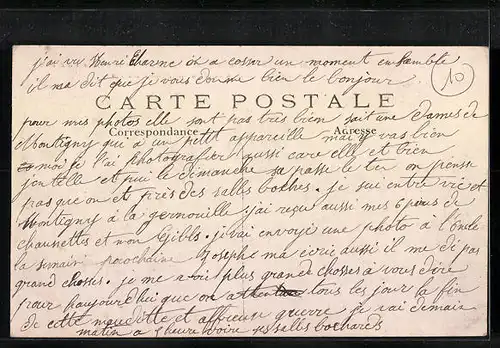 j'ai vu Henri Charne on a cosur un moment ensemble
il ma dit que je vous donne bien le bonjour
10
CARTE POSTALE
pour mes photos elle sont pas très bien sait une dames de
Montigny qua à un petit appareille mai y vas bien
Correspondance Adresse
moi je l'ai photografier aussi care elle et bien
jentelle et pui le dimanche sa passe le ten on pense
pas que on et près des salles boches. je sui entre vic et
Montigny à la germouille. j'ai reçu aussi mes 6 paires de
chaussettes et mon Gilbls. je vai envoyé une photo à l'Oncle
la semain prochaine Josephe ma ecrie aussi il me di pas
grand choses. je me voi plus grand choses à vous dire
pour haujourdhui que on tous les jour la fin
de cette maudette et affreuse guerre je vai demain
matin a heure voire ses salles bochards